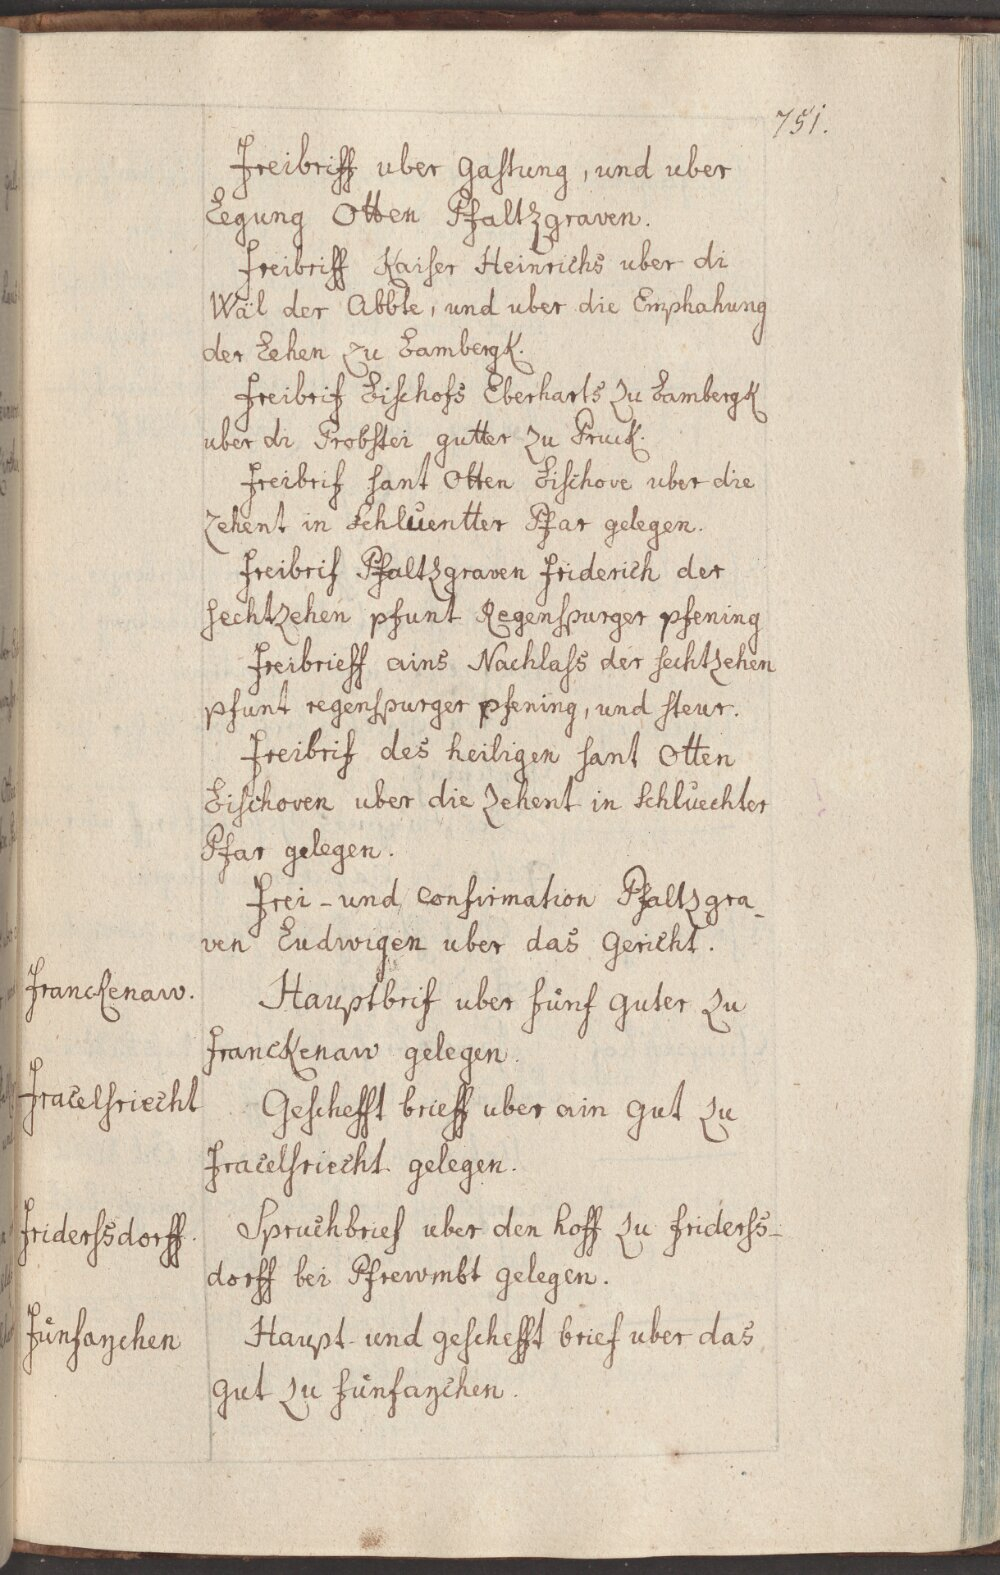 751.
Freibriff uber Gastung, und uber
Legung Otten Pfaltzgraven.
Freibriff Kaiser Heinrichs uber di
Wäl der Abbte, und uber die Emphahung
der Lehen zu Bambergk.
Freibrif Bischofs Eberharts zu Bambergk
uber di Probstei gutter zu Pruck.
Freibrif sant Otten Bischove uber die
Zehent in Schlůentter Pfar gelegen.
Freibrif Pfaltzgraven Friderich der
sechtzehen pfunt Regenspurger pfening
Freibrieff ains Nachlass der sechtzehen
pfunt regenspurger pfening, und steur.
Freibrif des heiligen sant Otten
Bischoven uber die Zehent in Schlůechter
Pfar gelegen.
Frei- und Confirmation Pfaltzgra-
ven Ludwigen uber das Gericht.
Franckenaw. Hauptbrif uber fůnf Guter zu
Franckenaw gelegen.
Fracelsriecht Geschefft brieff uber ain Gut zu
Fracelsriecht gelegen.
Friderssdorff. Spruchbrief uber den hoff zu Friderss-
dorff bei Pfrewmbt gelegen.
Fůnfaychen Haupt- und geschefft brief uber das
Gut zu Fůnfaychen.